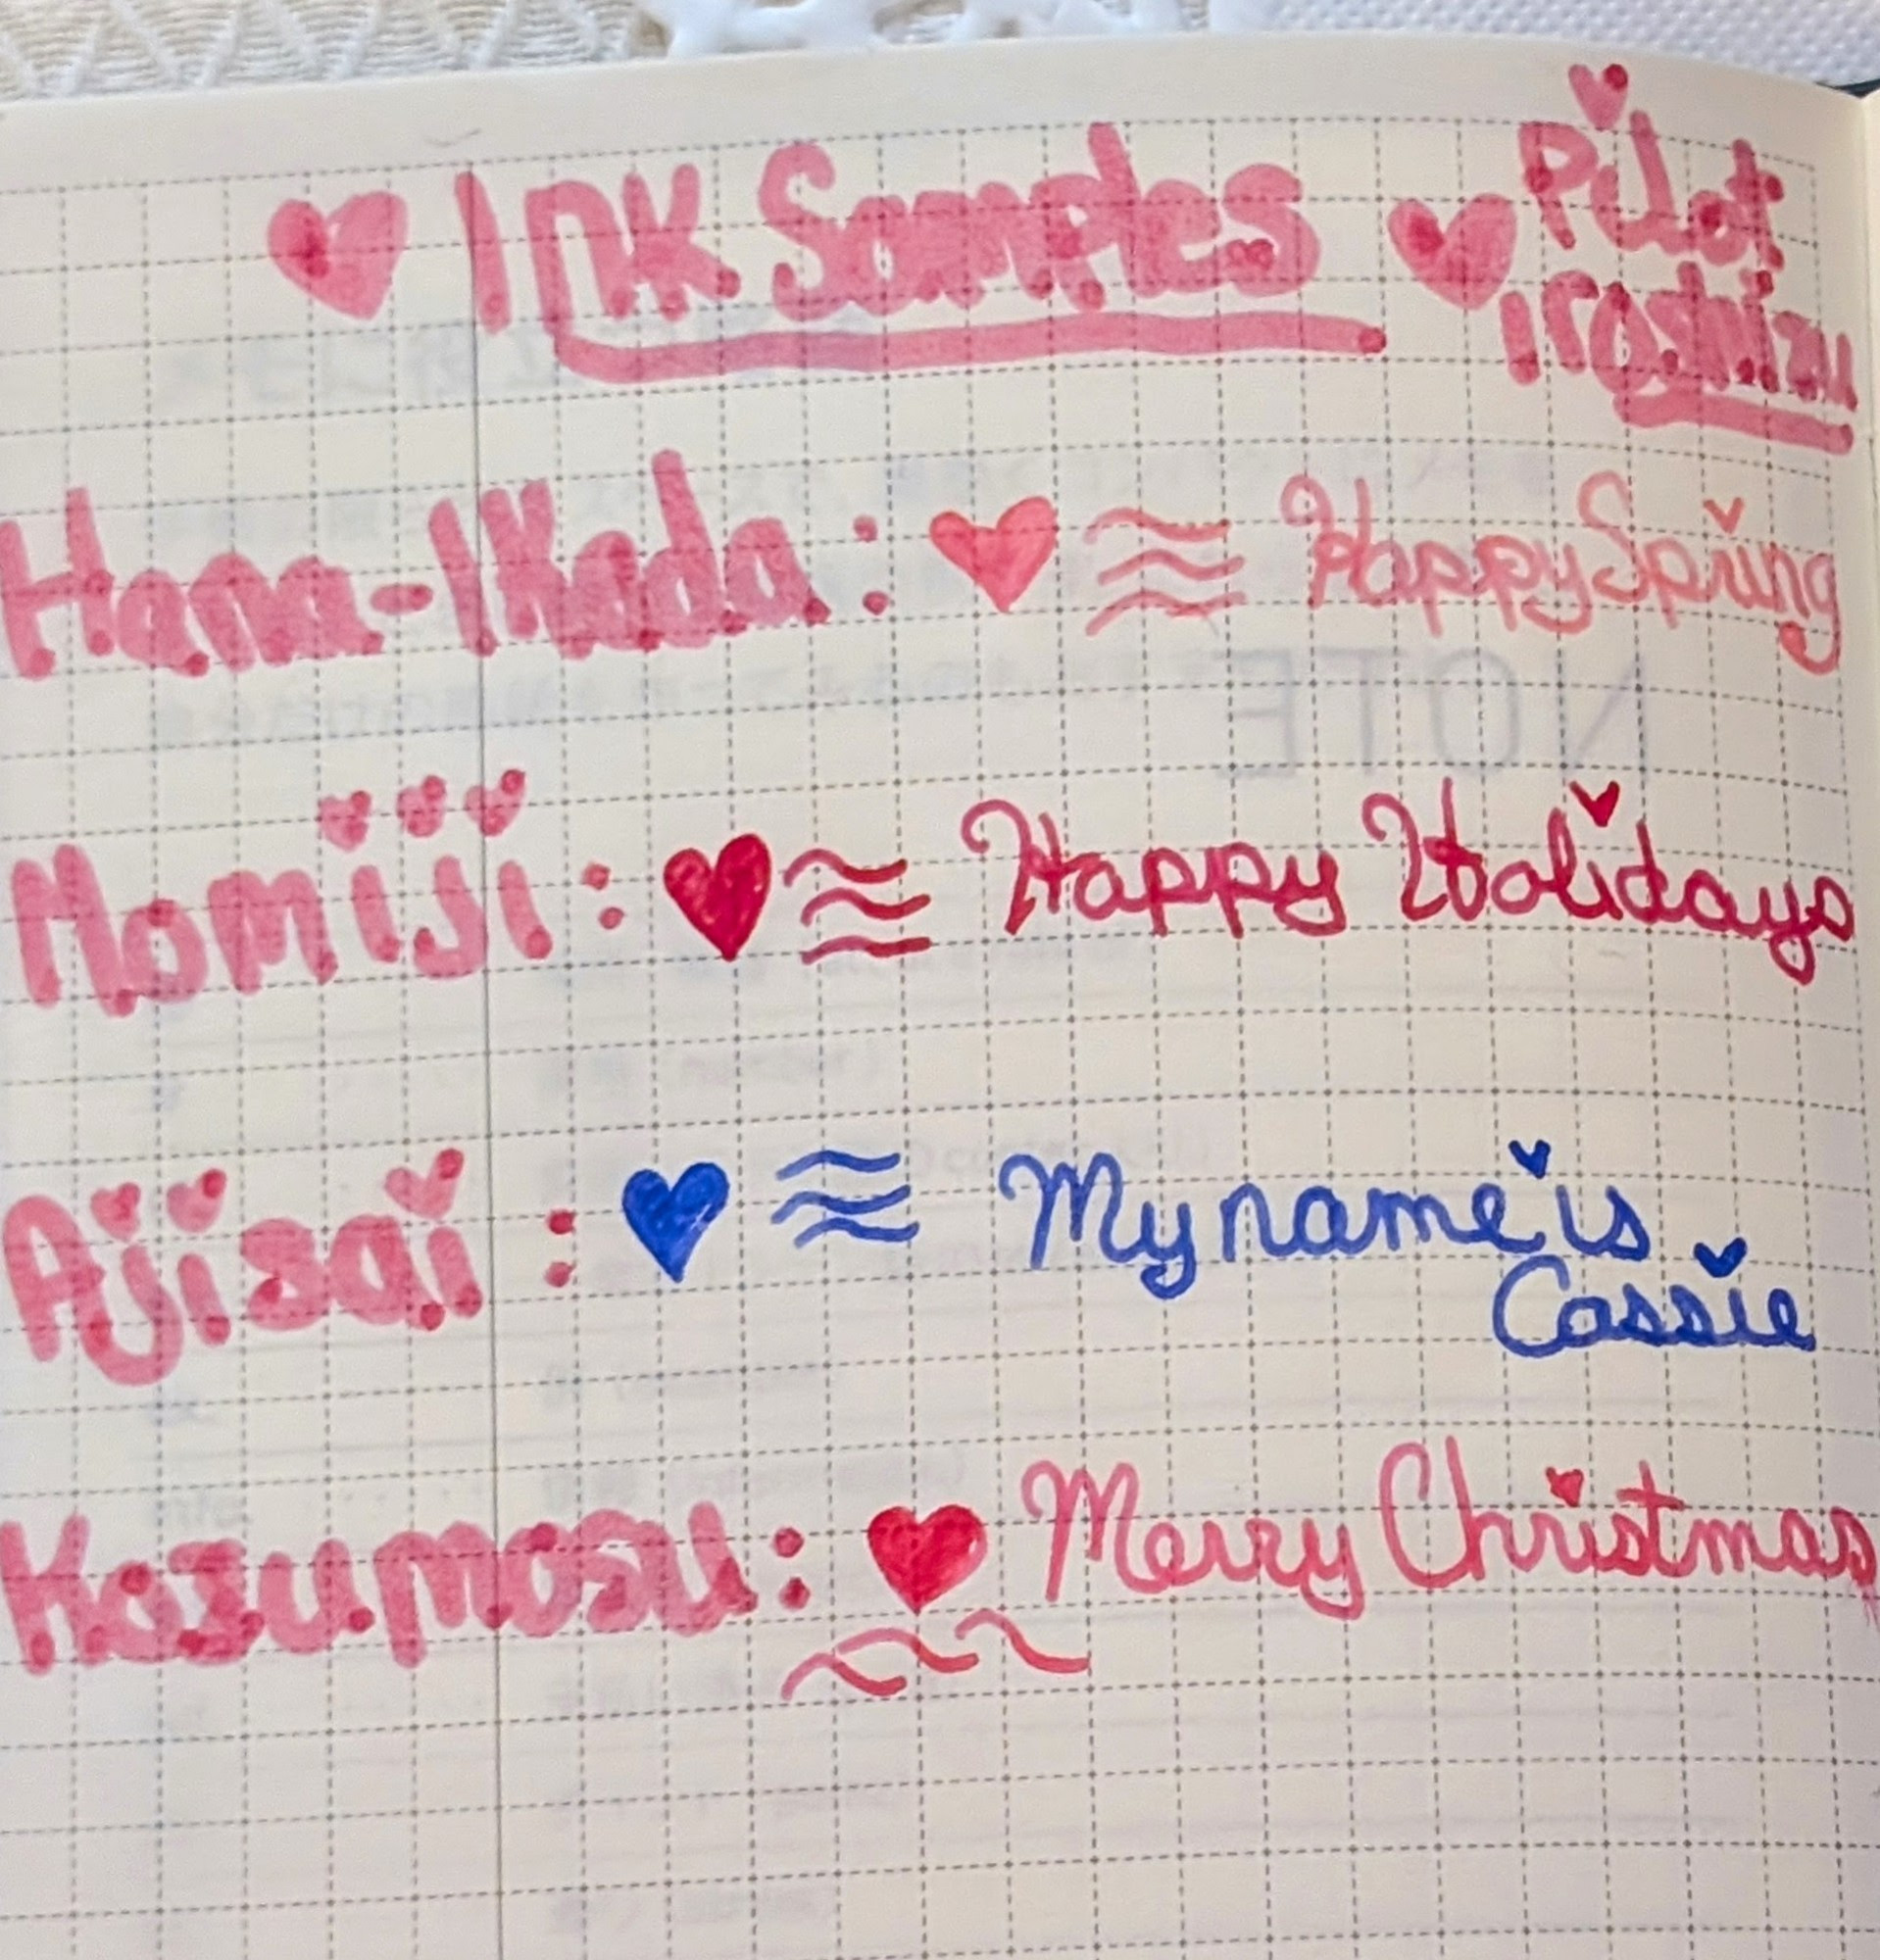 Ink Samples
Pilot
Iroshizu
Hana-IKada: Happy Spring
NOTE
Momiji: Happy Holidays
Ajisai: My name is
Cassie
Kosumosu: Merry Christmas